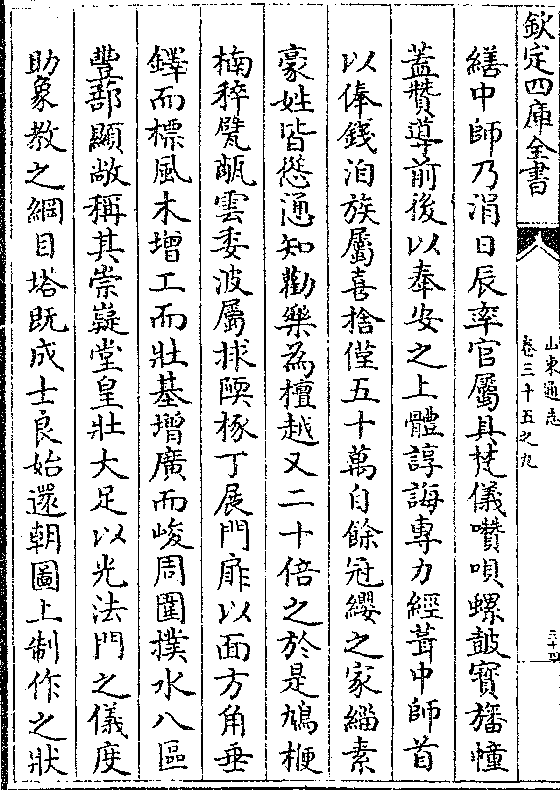 欽定四庫全書
山東通志
卷三十五之九
三十四
繕中師乃涓日辰率官屬具梵儀囋唄螺鼓寳旛幢
蓋贊導前後以奉安之上體諄誨專力經葺中師首
以俸錢洎族屬喜捨僅五十萬自餘冠纓之家緇素
豪姓皆慫通知勸樂為檀越又二十倍之於是鳩梗
楠稡甓瓴雲委波屬捄陾椓丁展門扉以面方角垂
鐸而標風木增工而壯基增廣而峻周圍撲水八區
豐蔀顯敞稱其崇嶷堂皇壯大足以光法門之儀度
助象教之綱目塔既成士良始還朝圖上制作之狀